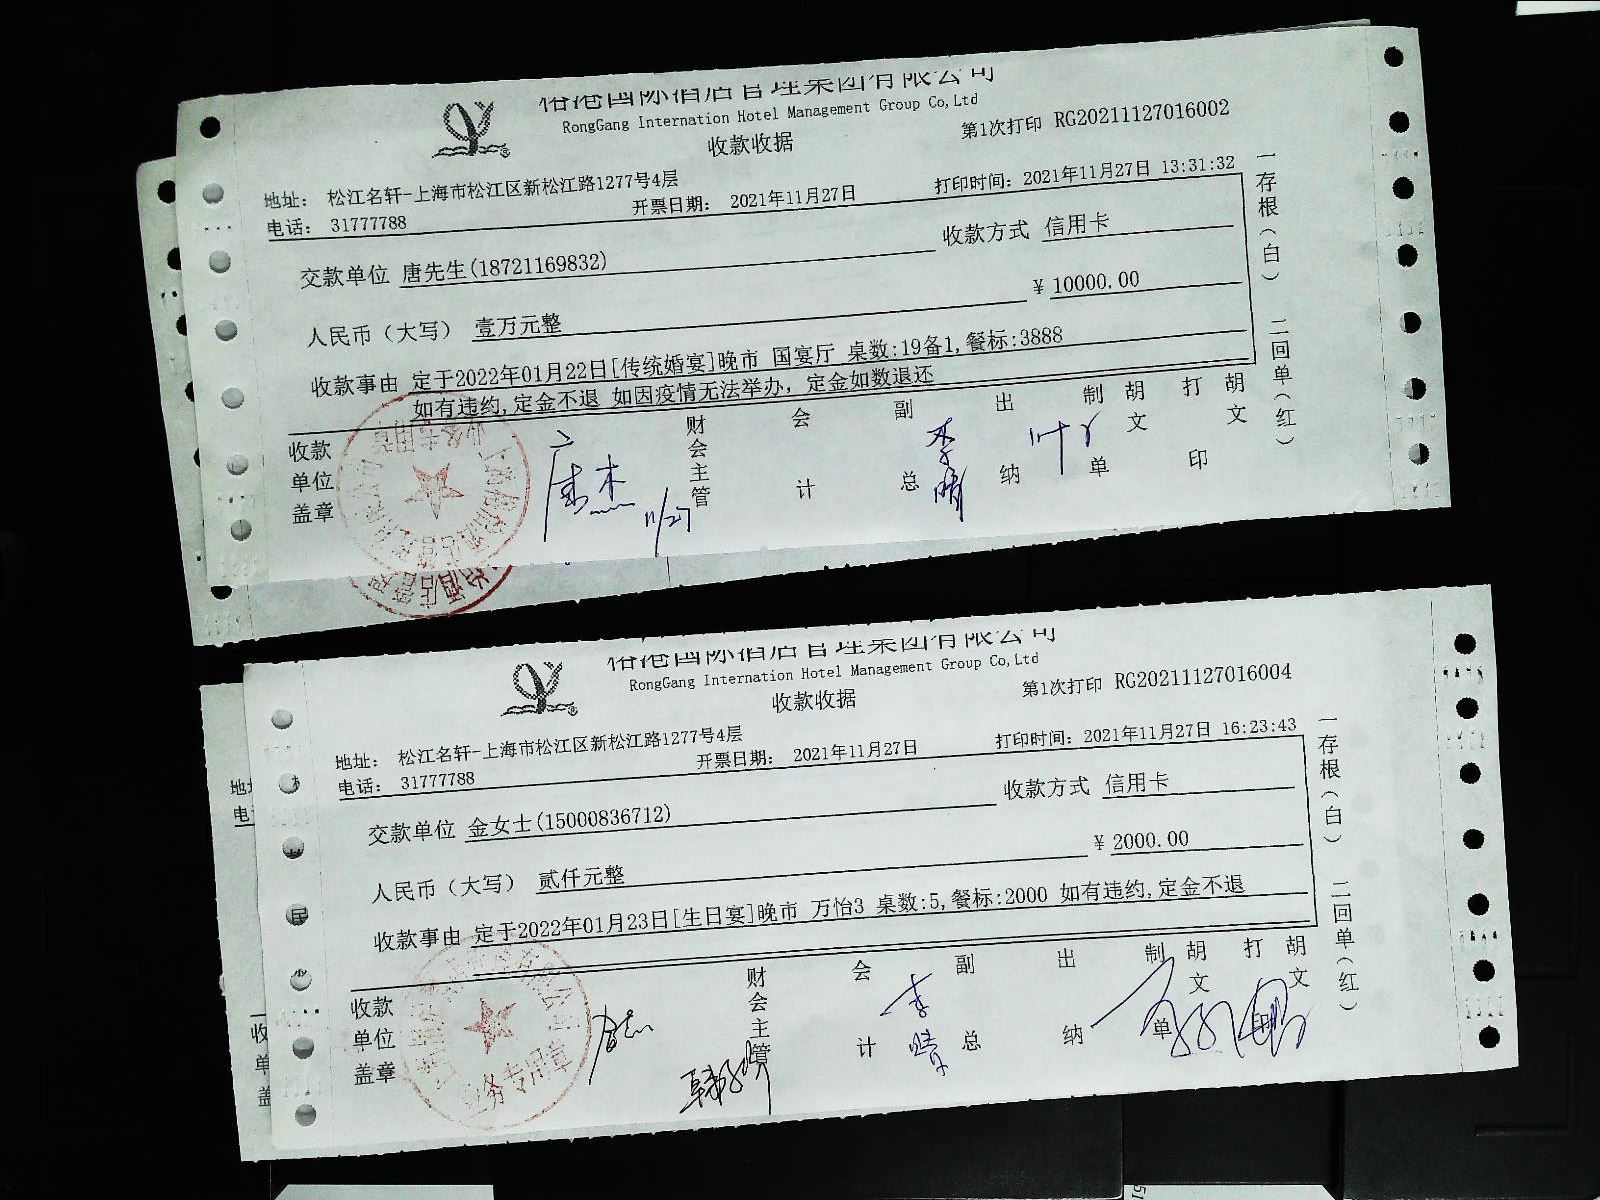 裕港国际酒店管理集团有限公司
RongGang Internation Hotel Management Group Co,Ltd
收款收据
第1次打印 RG20211127016002
地址： 松江名轩-上海市松江区新松江路1277号4层
电话： 31777788
开票日期： 2021年11月27日
打印时间： 2021年11月27日 13:31:32
交款单位 唐先生(18721169832)
收款方式 信用卡
人民币（大写） 壹万元整
¥ 10000.00
收款事由 定于2022年01月22日[传统婚宴]晚市 国宴厅 桌数:19备1,餐标:3888
如有违约,定金不退 如因疫情无法举办，定金如数退还
收款单位盖章
财会主管
会计
副总
出纳
制单
胡文
打印
胡文
11/27
一存根（白） 二回单（红）
业务专用章
裕港国际酒店管理集团有限公司
RongGang Internation Hotel Management Group Co,Ltd
收款收据
第1次打印 RG20211127016004
地址： 松江名轩-上海市松江区新松江路1277号4层
电话： 31777788
开票日期： 2021年11月27日
打印时间： 2021年11月27日 16:23:43
交款单位 金女士(15000836712)
收款方式 信用卡
人民币（大写） 贰仟元整
¥ 2000.00
收款事由 定于2022年01月23日[生日宴]晚市 万怡3 桌数:5,餐标:2000 如有违约,定金不退
收款单位盖章
财会主管
会计
副总
出纳
制单
胡文
打印
胡文
一存根（白） 二回单（红）
业务专用章